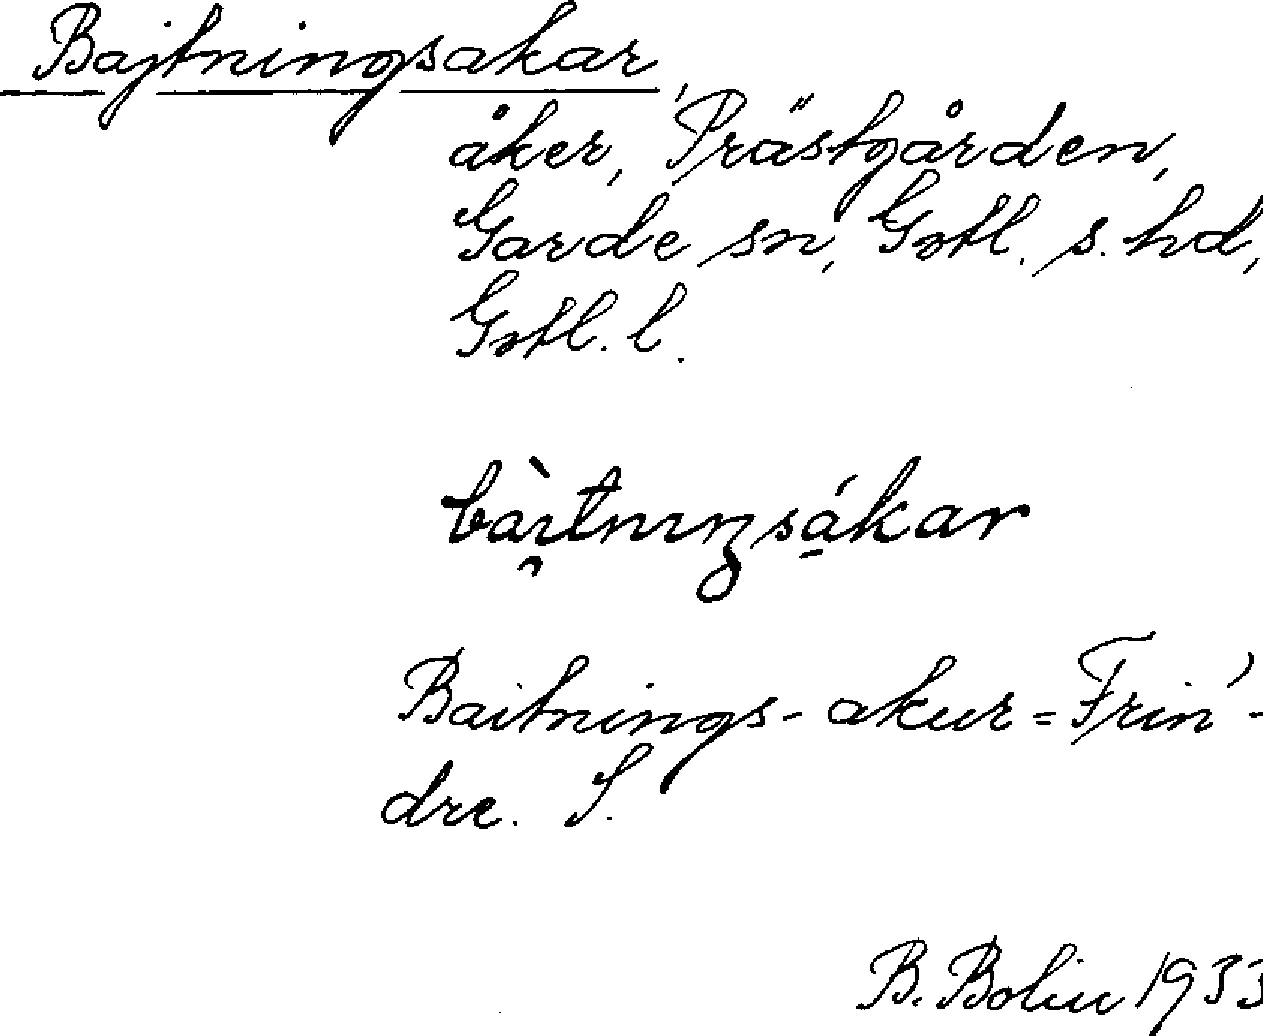 Bajtningsakar,
åker, Prästgården,
Garde sn, Gotl. s. hd,
Gotl. l.
bàɪ̯tnɪŋsá̱kar
Baitnings-akur = Frin'-
dre. S.
B. Bolin 1933